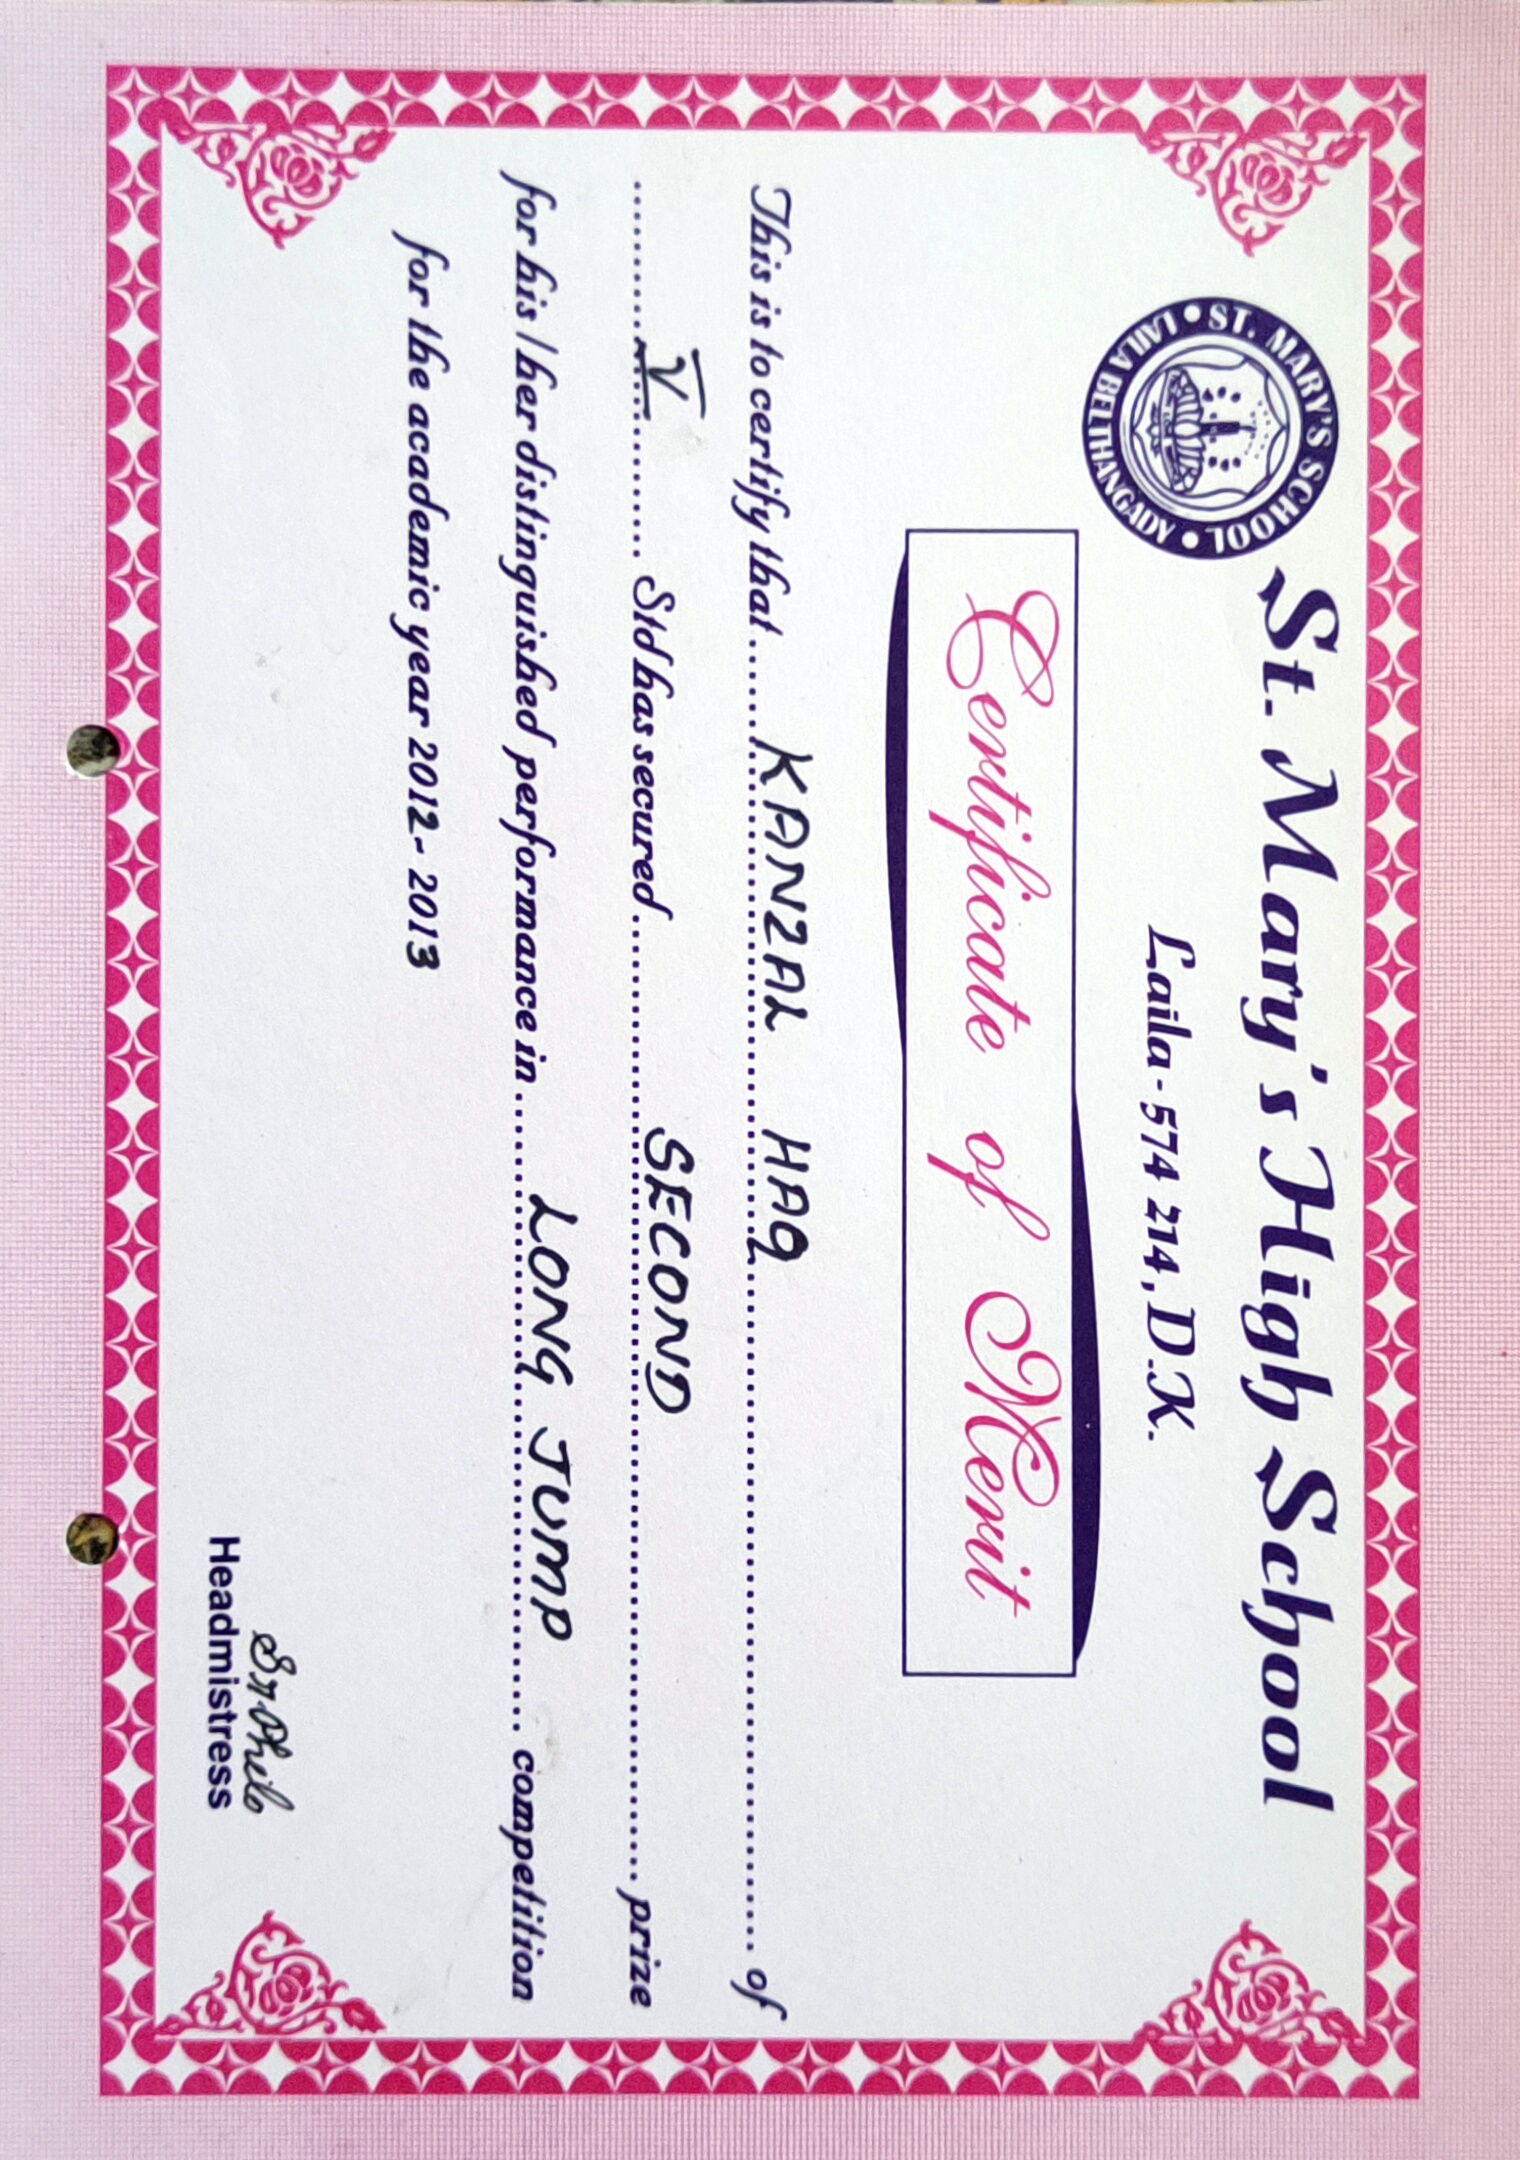 St. Mary's High School
ST. MARY'S SCHOOL • LAILA BELTHANGADY •
Laila - 574 214, D.K.
Certificate of Merit
This is to certify that KANZAL HAQ of
V Std has secured SECOND prize
for his / her distinguished performance in LONG JUMP competition
for the academic year 2012 - 2013
Headmistress